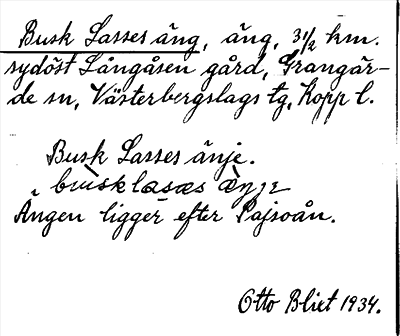 Busk Lasses äng, äng, 3½ km.
sydöst Långåsen gård, Grangär-
de sn, Västerbergslags tg, Kopp l.
Busk Lasses änje.
Ängen ligger efter Pajsoån.
Otto Blixt 1934.